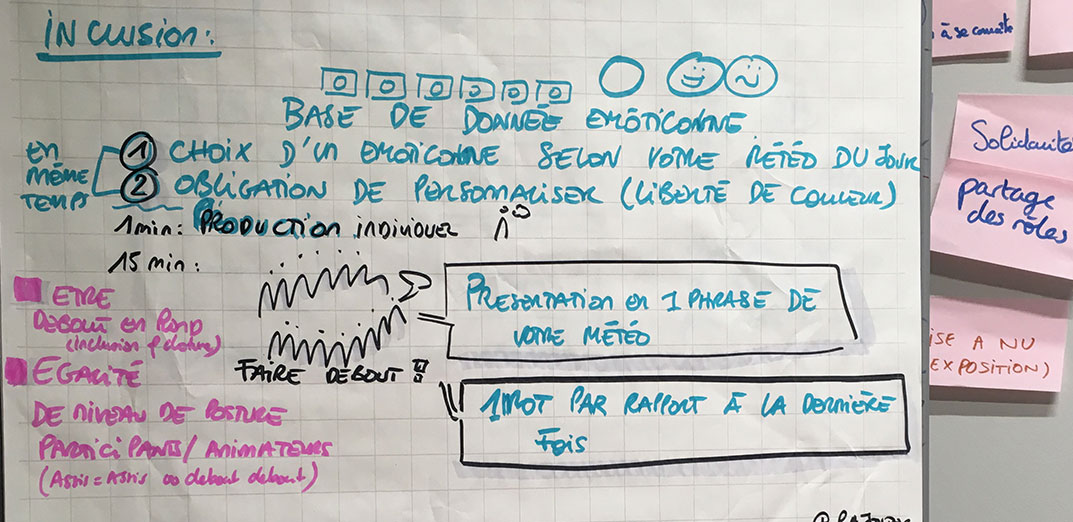 INCLUSION:
BASE DE DONNÉE EMOTICONNE
EN MÊME TEMPS
1 CHOIX D'UN EMOTICONNE SELON VOTRE MÉTÉO DU JOUR
2 OBLIGATION DE PERSONNALISER (LIBERTÉ DE COULEUR)
1 min: PRODUCTION INDIVIDUEL
15 min:
ETRE
DEBOUT EN ROND
(inclusion / cloture)
EGALITÉ
DE NIVEAU DE POSTURE
PARTICIPANTS / ANIMATEURS
(Assis = Assis ou debout debout)
FAIRE DEBOUT !!
PRESENTATION en 1 PHRASE DE
VOTRE MÉTÉO
1 MOT PAR RAPPORT À LA DERNIÈRE
FOIS
à se connaître
Solidarité
partage
des rôles
ISE A NU
EXPOSITION)